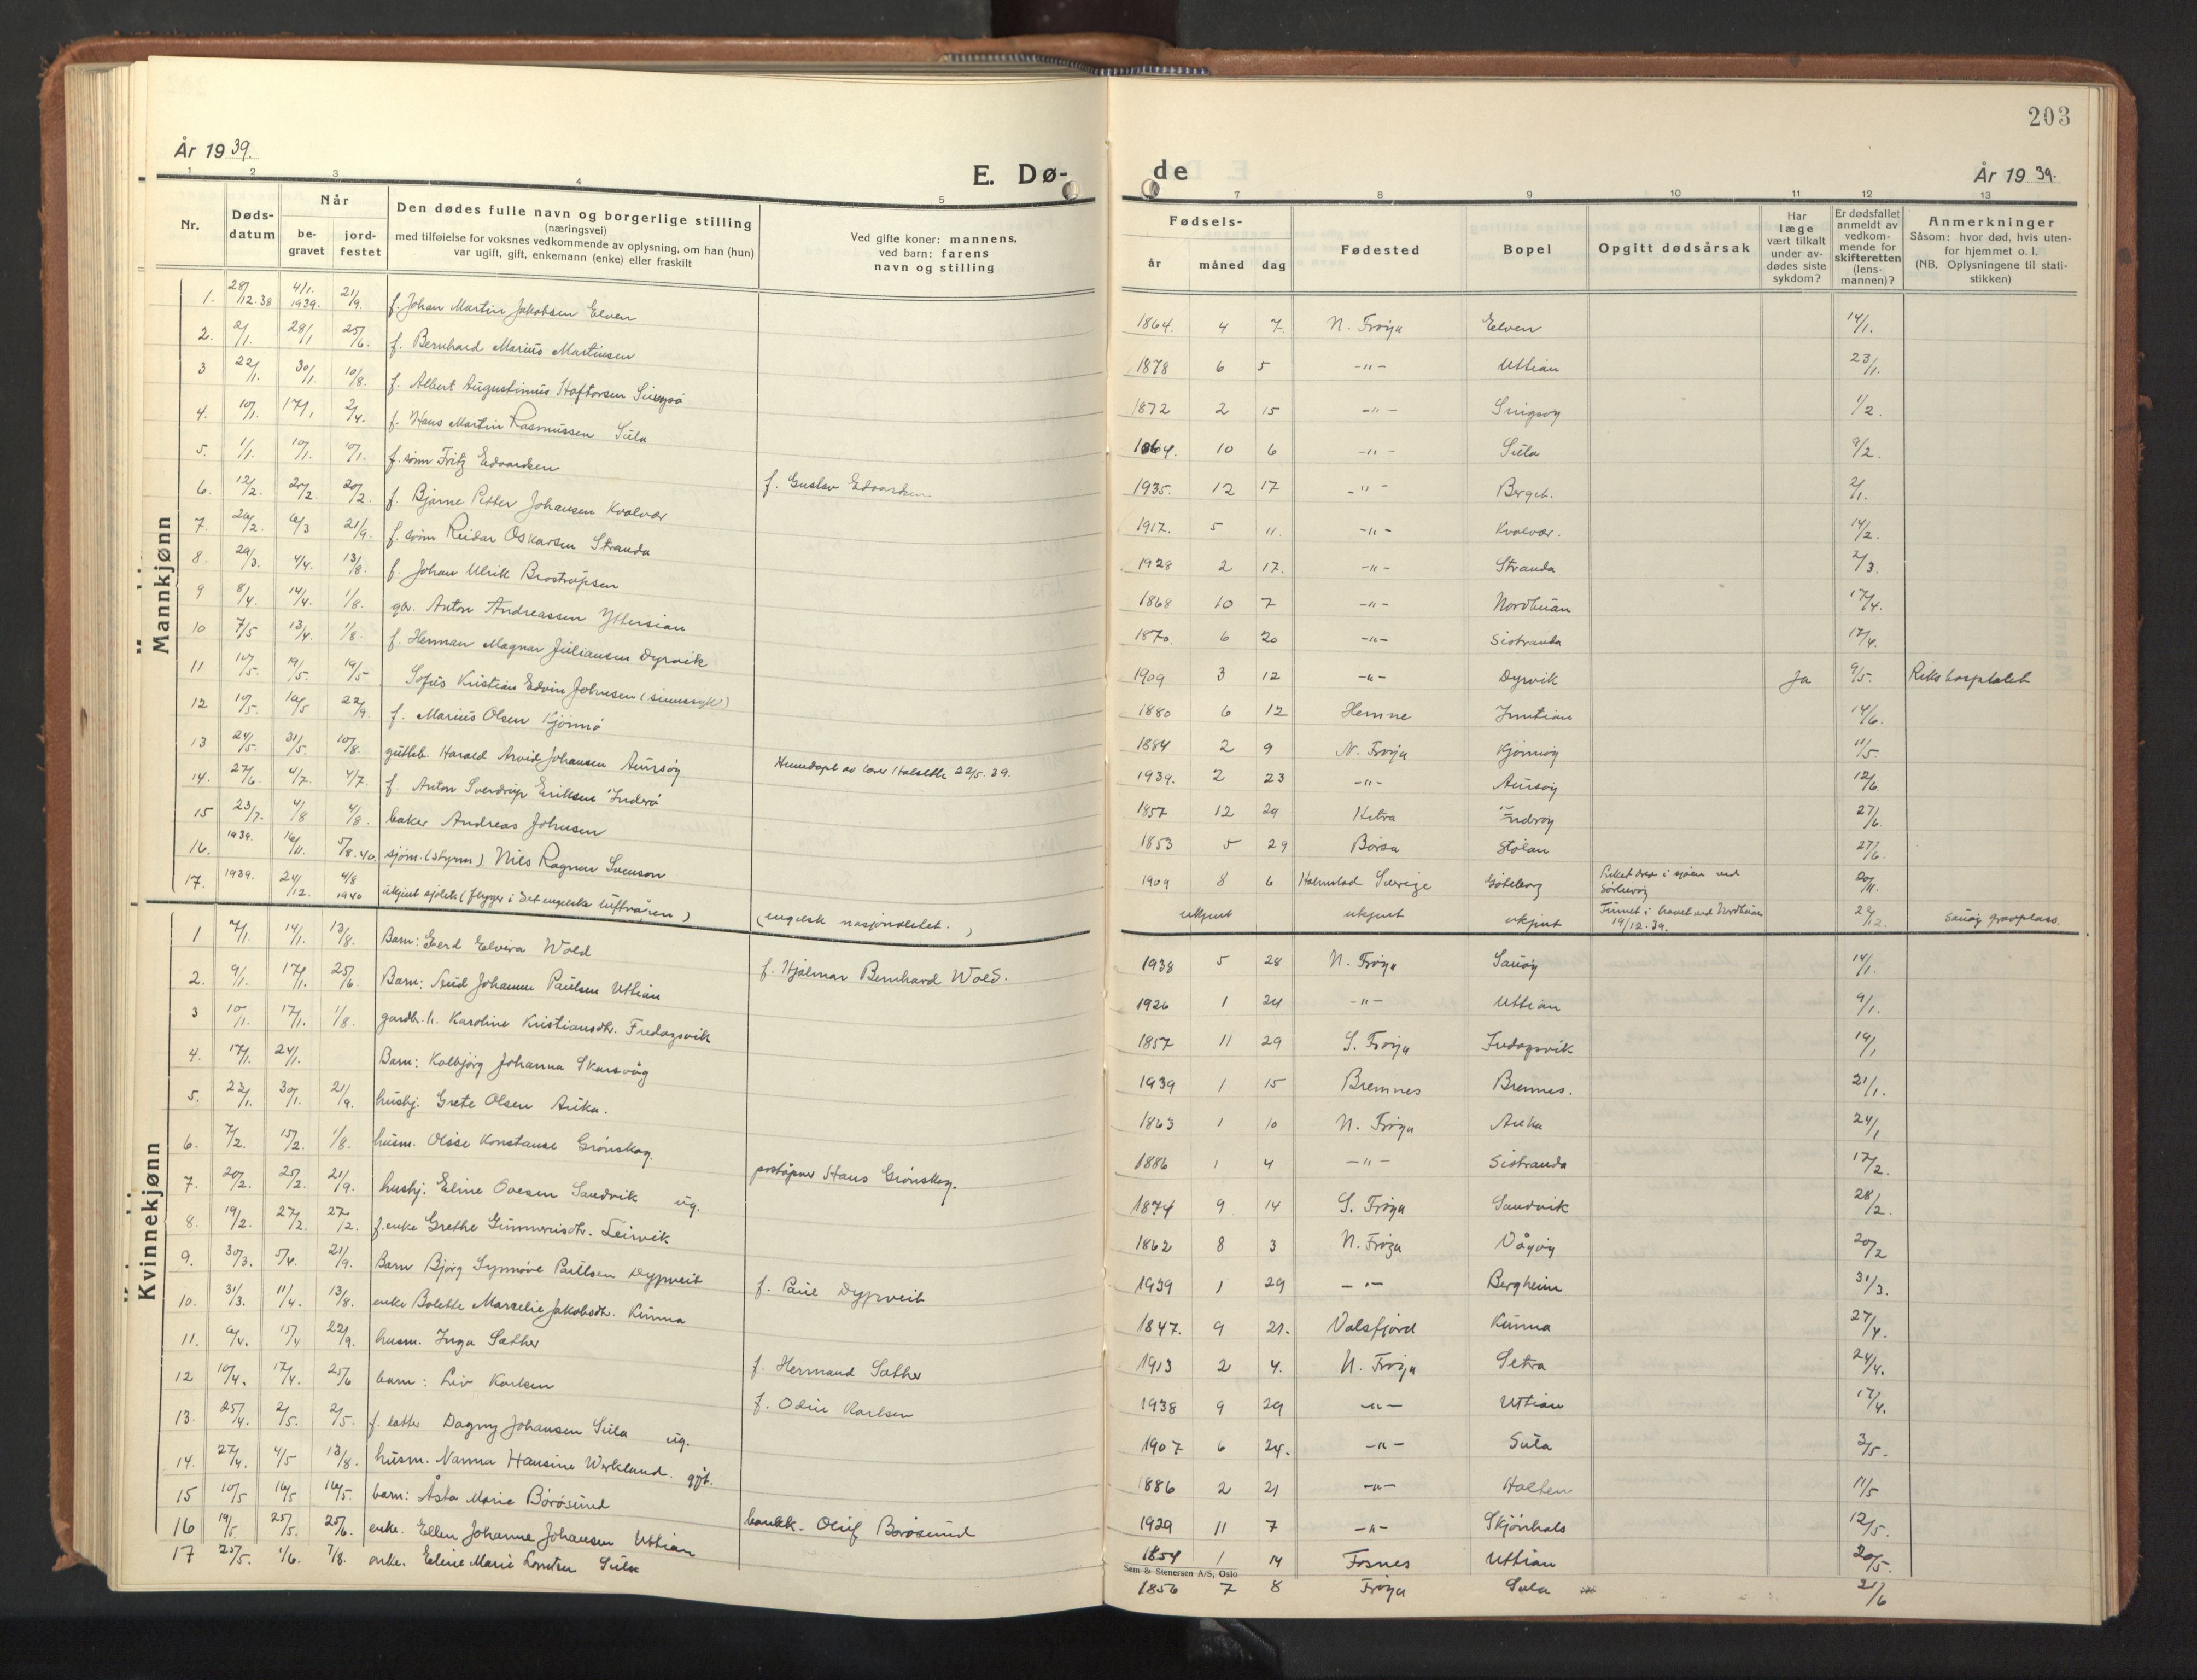 203
År 1939.
E. Dø-
de
År 1939.
1 2 3 4 5
7 8 9 10 11 12 13
Nr.
Døds-
datum
Når
be-
gravet
jord-
festet
Den dødes fulle navn og borgerlige stilling
(næringsvei)
med tilføielse for voksnes vedkommende av oplysning, om han (hun)
var ugift, gift, enkemann (enke) eller fraskilt
Ved gifte koner: mannens,
ved barn: farens
navn og stilling
Fødsels-
år måned dag
Fødested
Bopel
Opgitt dødsårsak
Har
læge
vært tilkalt
under av-
dødes siste
sykdom?
Er dødsfallet
anmeldt av
vedkom-
mende for
skifteretten
(lens-
mannen)?
Anmerkninger
Såsom: hvor død, hvis uten-
for hjemmet o. l.
(NB. Oplysningene til stati-
stikken)
Mannkjønn
1. 28/12.38 4/1. 1939. 21/9. f. Johan Martin Jakobsen Elven 1864. 4 7 N. Frøya Elven 14/1.
2. 2/1. 28/1 25/6. f. Bernhard Marius Martinsen 1878 6 5 -"- Uttian 23/1.
3 22/1. 30/1. 10/8. f. Albert Augustinus Haftorsen 1872 2 15 -"- 1/2.
4. 10/1. 17/1 2/4. f. Hans Martin Rasmussen Sula 1864. 10 6 -"- Sula 9/2.
5. 1/1. 10/1. 10/1. f. sønn Fritz Edvardsen f. Gustav Edvardsen 1935. 12 17 -"- 2/1.
6. 12/2. 20/2. 20/2. f. Bjarne Petter Johansen Kvalvær 1917. 5 11. -"- Kvalvær. 14/2.
7. 26/2. 6/3 21/9. f. sønn Reidar Oskarsen Stranda 1928 2 17. -"- Stranda 2/3.
8. 29/3. 4/4. 13/8. f. Johan Ulrik Brostrupsen 1868 10 7 -"- Nordhuan 17/4.
9 8/4. 14/4. 1/8. gbr. Anton Andreassen Yttersian 1870. 6 20 -"- Sistranda 17/4.
10 7/5 13/4. 1/8. f. Herman Magnar Juliansen Dyrvik 1909 3 12 -"- Dyrvik Ja 9/5. Rikshospitalet
11 10/5. 19/5. 19/5 Sofus Kristian Edvin Johnsen (sinnssyk) 1880 6 12 Hemne Inntian 14/6.
12 10/5. 16/5 22/9. f. Marius Olsen Kjønnø 1884 2 9 N. Frøya Kjønnøy 11/5.
13 24/5. 31/5. 10/8. gutteb. Harald Arvid Johansen Aursøy Hjemmedøpt av lærer Halseth 22/5.39. 1939. 2 23 -"- Aursøy 12/6.
14. 27/6. 4/7. 4/7. f. Anton Sverdrup Eriksen Inderø 1857 12 29 Hitra Indrøy 27/6.
15 23/7. 4/8 4/8. baker Andreas Johnsen 1853 5 29 Børsa Stølan 27/6.
16. 1939. 16/11. 5/8.40. sjøm. (styrm) Nils Ragnar Svenson 1909 8 6 Halmstad Sverige Göteborg 20/11.
17. 1939. 24/12. 4/8 1940 ukjent sjølik (flyger i Det engelske luftvåpen) (engelsk nasjonalitet.) ukjent ukjent ukjent Funnet i havet ved Nordhuan 19/12.39. 29/12. Sauøy gravplass.
Kvinnekjønn
1 7/1. 14/1. 13/8. Barn: Gerd Elvira Wold f. Hjalmar Bernhard Wold. 1938 5 28 N. Frøya Sauøy 14/1.
2. 9/1. 17/1. 25/6. Barn: Aud Johanne Paulsen Uttian 1926 1 24 -"- Uttian 9/1.
3 10/1. 17/1. 1/8. gardbr. h. Karoline Kristiansdtr. Fredagsvik 1857 11 29 S. Frøya Fredagsvik 19/1
4. 17/1. 24/1. Barn: Kolbjørg Johanna Skarsvåg 1939 1 15 Bremnes Bremnes. 21/1.
5. 22/1. 30/1. 21/9. hushj. Grete Olsen Auka. 1863 1 10 N. Frøya Auka 24/1
6. 7/2. 15/2. 1/8. husm. Olise Konstanse Grønskag. poståpner Hans Grønskag. 1886 1 4 -"- Sistranda 17/2.
7. 20/2. 25/2. 21/9. hushj. Eline Ovesen Sandvik ug. 1874 9 14 S. Frøya Sandvik 28/2.
8. 19/2. 27/2. 27/2. f. enke Grethe Gunnerusdtr. Leirvik 1862 8 3 N. Frøya Vågøy 20/2
9. 30/3. 5/4. 21/9. Barn Bjørg Synnøve Paulsen Dypveit f. Paul Dypveit 1939 1 29 -"- Bergheim 31/3.
10. 31/3. 11/4. 13/8. enke Bolette Marselie Jakobsdtr. Kunna 1847. 9 21. Valsfjord Kunna 27/4.
11. 6/4. 15/4 22/9. husm. Inga Sæther f. Hermand Sæther 1913 2 4. N. Frøya Setra 24/4.
12 10/4. 17/4. 25/6 barn: Liv Karlsen f. Odin Karlsen 1938 9 29 -"- Uttian 17/4.
13. 25/4. 2/5. 2/5. f. datter Dagny Johansen Sula ug. 1907 6 24. -"- Sula 3/5.
14. 27/4. 4/5 13/8. husm. Nanna Hansine Werkland. gift. 1886 2 21 -"- Halten 11/5
15 10/5 16/5 16/5. barn: Åsta Marie Børøsund bankk. Oluf Børøsund 1929 11 7 -"- Skjønhals 12/5.
16 19/5. 25/5. 25/6. enke. Ellen Johanne Johansen Uttian 1854 1 14 Fosnes Uttian 20/5.
17 25/5. 1/6. 7/8. enke. Eline Marie Lorntsen Sula 1856 7 8 Frøya Sula 21/6
Sem & Stenersen A/S, Oslo